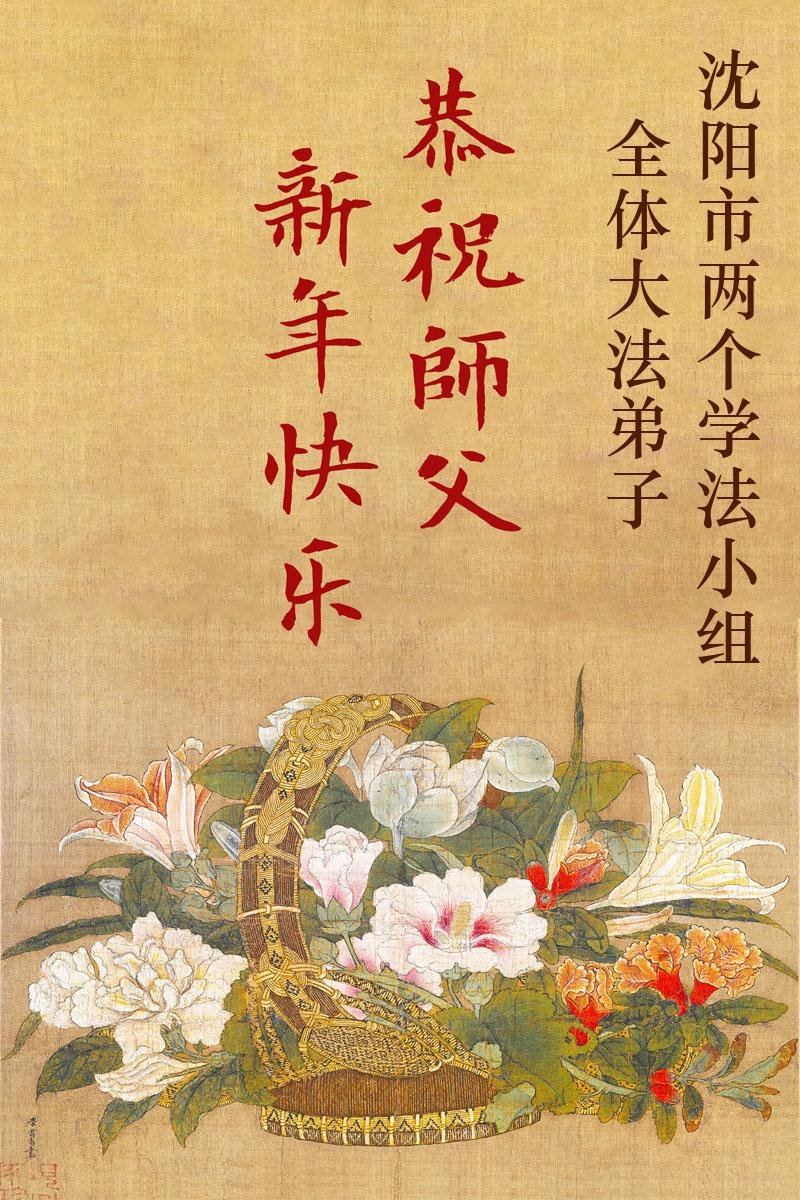 沈阳市两个学法小组
全体大法弟子
恭祝師父
新年快乐